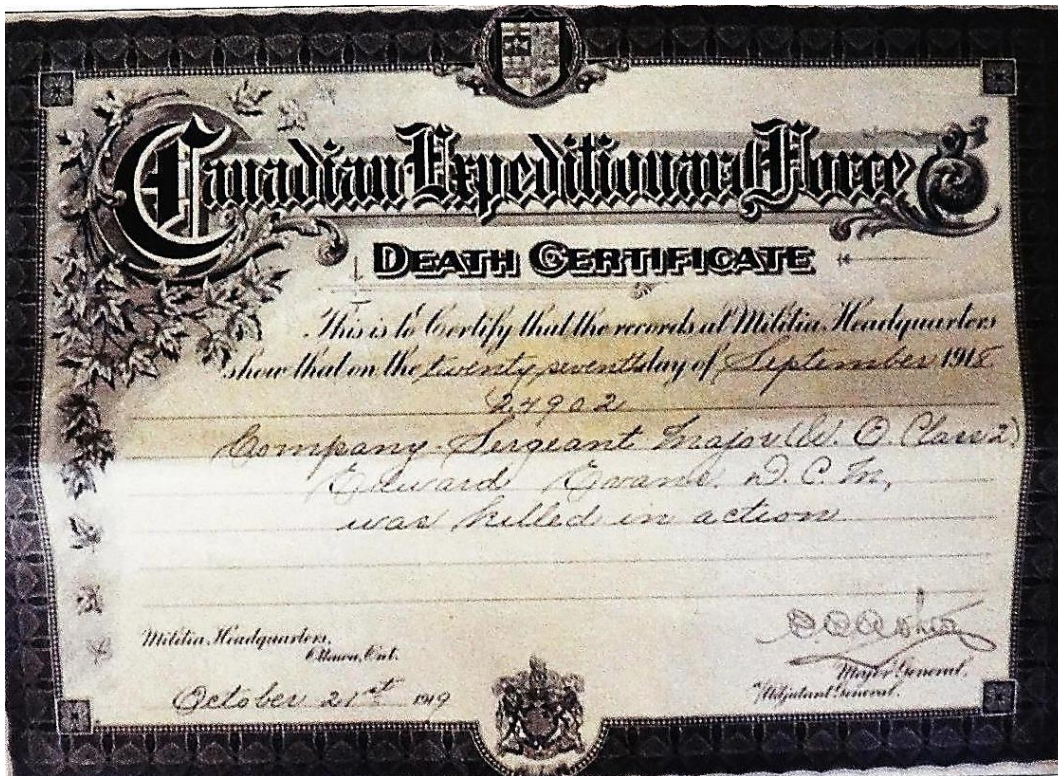 Canadian Expeditionary Force
DEATH CERTIFICATE
This is to Certify that the records at Militia Headquarters
show that on the twenty seventh day of September 1918
24902
Company Sergeant Major (W. O. Class 2)
Edward Evans. D. C. M,
was killed in action
Militia Headquarters,
Ottawa, Ont.
October 21st 1919
Major General,
Adjutant General.